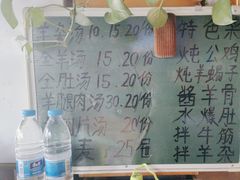 汤 10.15.20份
全羊汤 15.20份
全肚汤 15.20份
羊腿肉汤30.20份
片汤 20份
25屉
特色菜
炖公鸡
炖羊蝎子
酱羊骨
水爆肚
拌牛筋
拌羊杂